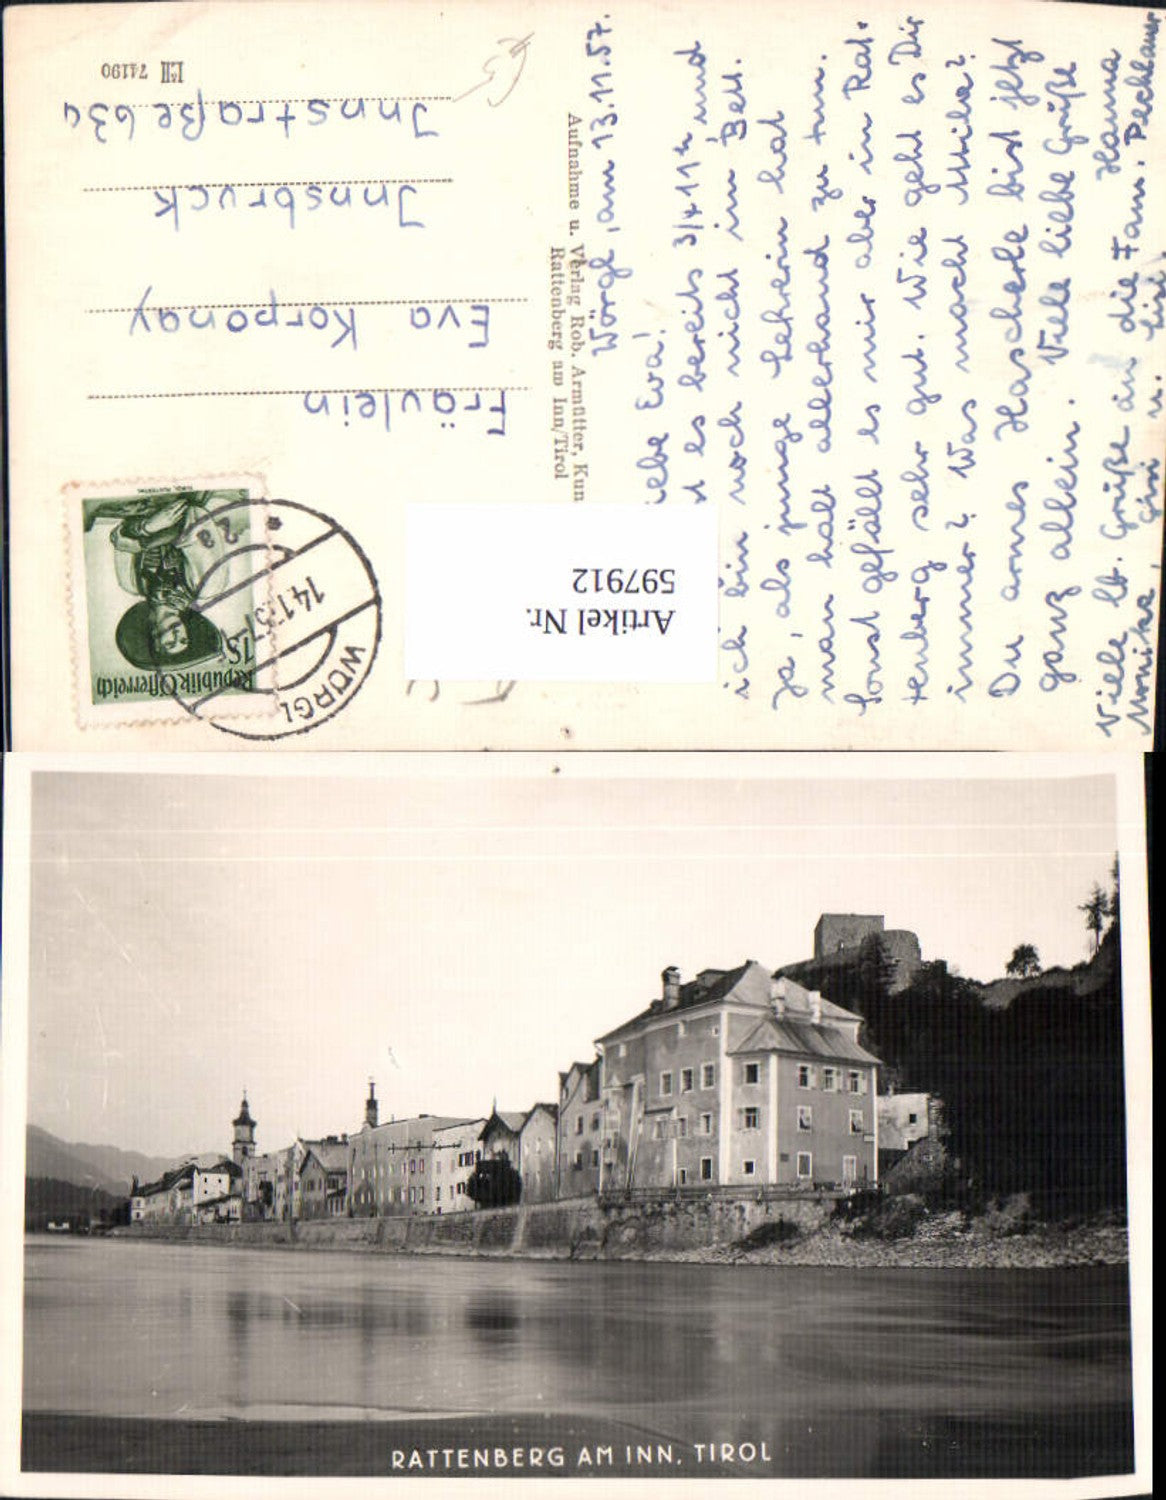 Wörgl, am 13.11.57.
iebe Eva!
t es bereits 3/4 11h und
ich bin noch nicht im Bett.
Ja, als junge Lehrerin hat
man halt allerhand zu tun.
Sonst gefällt es mir aber in Rat-
tenberg sehr gut. Wie geht es Dir
immer? Was macht Miha?
Du armes Hascherle bist jetzt
ganz allein. Viele liebe Grüße
Hanna
Viele lb. Grüße an die Fam. Pechlaner
Monika, Gisi u. Lisi.
Aufnahme u. Verlag Rob. Armütter, Kun
Rattenberg am Inn/Tirol
Fräulein
Eva Korponay
Innsbruck
Innstraße 63a
I-II 74190
Republik Österreich
1S
WÖRGL
Artikel Nr.
597912
RATTENBERG AM INN. TIROL